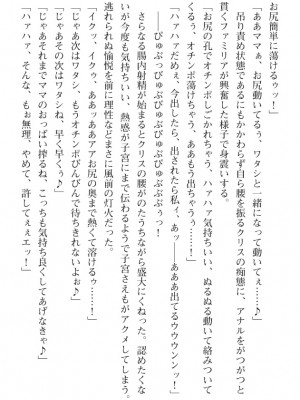 お尻簡単に蕩けるゥッ！
「ああママぁ、お尻動いてるぅ、ワタシと一緒になって動いてぇ……♪」
吊り責め状態であるにもかかわらず自ら腰を振るクリスの痴態に、アナルをがつがつと
貫くファミリアが興奮した様子で身震いする。
「お尻の孔でオチンポしごかれちゃう、ハァハァ気持ちいい、ぬるぬる動いて絡みついて
くるぅ、オチンポ蕩けちゃう、ああもう出ちゃうぅ！」
「ハァハァだめぇ、今出したら、出されたら私ィ、あッ――あああ出てるウウウンンッ！」
――びゅぷっびゅぷぶびゅぷぶぷぷぅっ！
さらなる腸内射精が始まるとクリスの腰がのたうちながら盛大にくねった。認めたくな
いが今度も気持ちいい、熱感が子宮にまで伝わるようで子宮さえもがアクメしてしまう、
逃れられぬ愉悦を前に理性などまさに風前の灯火だった。
「イクッ、イクゥ、ああッあああアアお尻の奥まで熱くて溶けるゥ……！」
「じゃあ次はワタシ、もうオチンポびんびんで待ちきれないよぉ♪」
「じゃあその次はワタシね、早く早くぅ♪」
「じゃあそれまでママのおっぱい搾るね、こっちも気持ち良くしてあげなきゃ♪」
「ハァハァ、そんな、もぉ無理、やめて、許してぇぇエッ！」